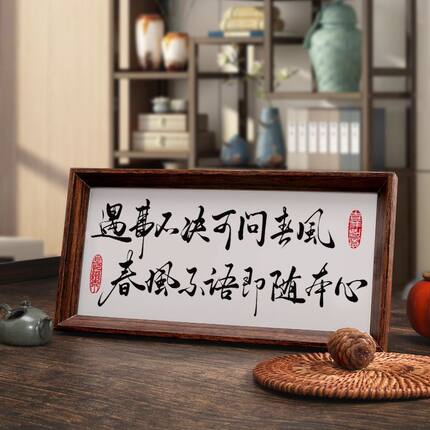 遇事不决可问春風
春風不语即随本心